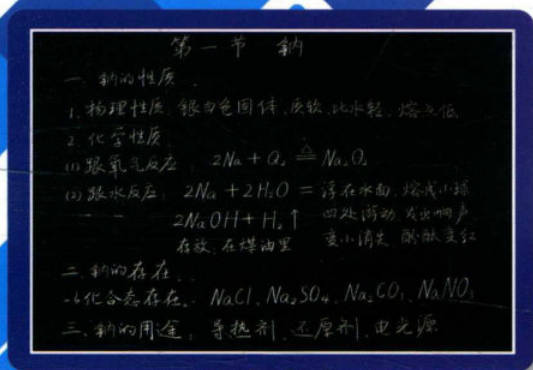 第一节 钠
一、钠的性质、
1. 物理性质、银白色固体、质软、比水轻、熔点低
2. 化学性质
(1) 跟氧气反应 2Na + O₂ ≜ Na₂O₂
(2) 跟水反应, 2Na + 2H₂O = 浮在水面、熔成小球
2NaOH + H₂↑ 四处游动、发出响声
存放、在煤油里 变小消失、酚酞变红
二、钠的存在、
化合态存在。NaCl、Na₂SO₄、Na₂CO₃、NaNO₃
三、钠的用途, 导热剂、还原剂、电光源